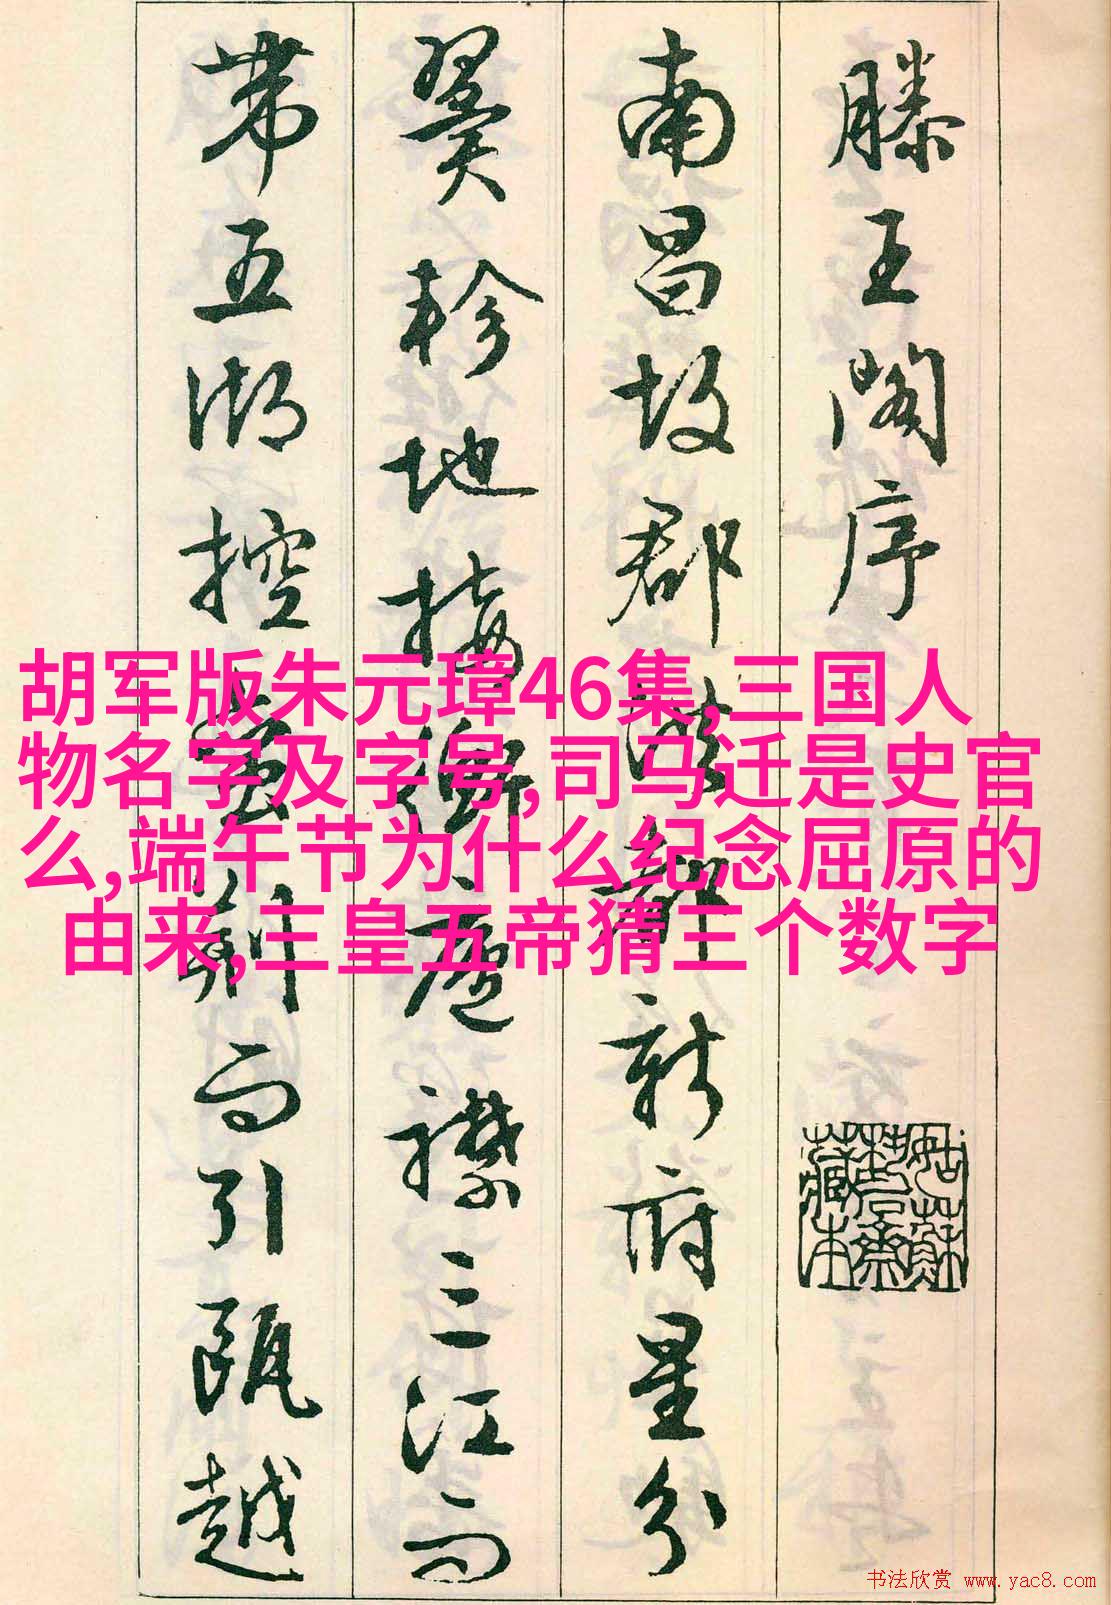 滕王閣序
南昌故郡洪都新府星分
翼軫地接衡廬襟三江而
帶五湖控蠻荊而引甌越
胡军版朱元璋46集,三国人
物名字及字号,司马迁是史官
么,端午节为什么纪念屈原的
由来,三皇五帝猜三个数字
姑蘇
藏本
书法欣赏 www.yac8.com